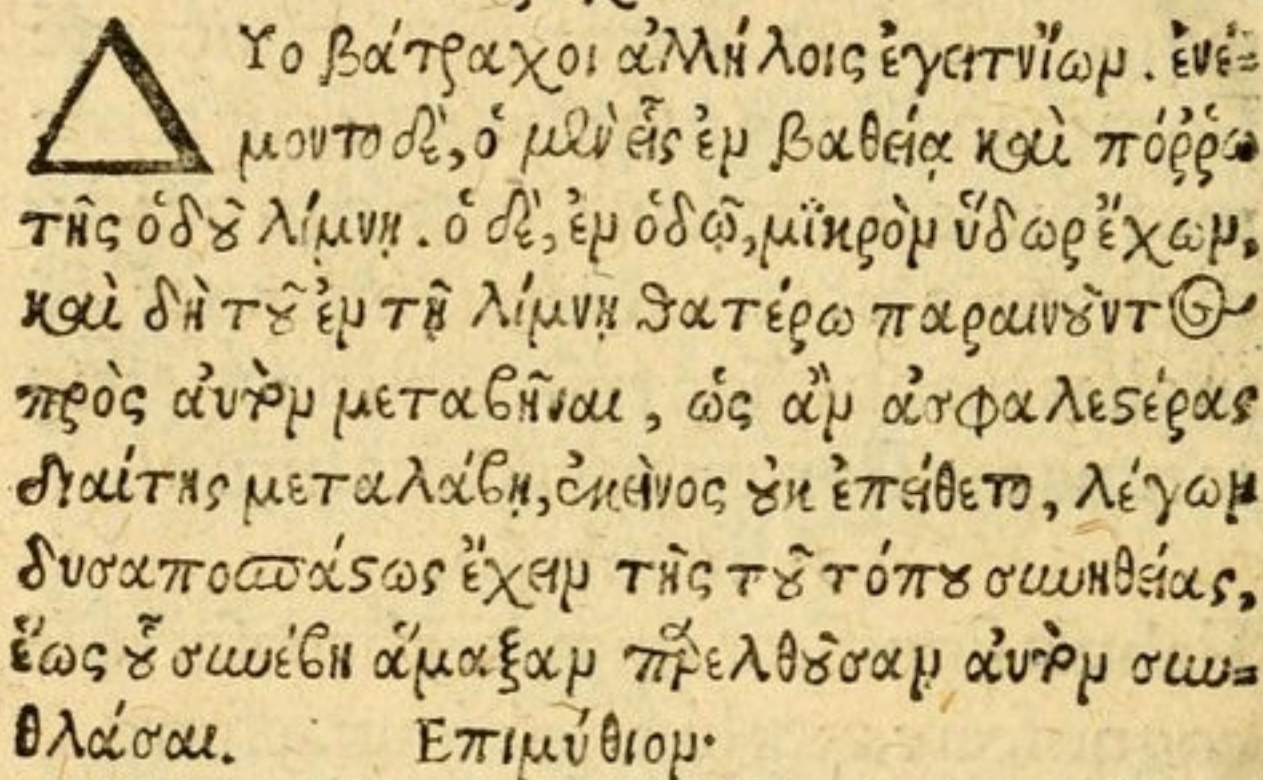 ΔΥο βάτραχοι ἀλλήλοις ἐγειτνίων. ἐνέ=
μοντο δὲ, ὁ μὲν εἷς ἐν βαθείᾳ καὶ πόῤῥω
τῆς ὁδοῦ λίμνῃ. ὁ δὲ, ἐν ὁδῷ, μϊκρὸν ὕδωρ ἔχων,
καὶ δὴ τοῦ ἐν τῇ λίμνῃ θατέρω παραινοῦντος
πρὸς ἀυτὸν μεταβῆναι, ὡς ἂν ἀσφαλεστέρας
διαίτης μεταλάβῃ, ἐκεῖνος οὐκ ἐπείθετο, λέγων
δυσαποσπάστως ἔχειν τῆς τοῦ τόπου συνηθείας,
ἕως οὗ συνέβη ἅμαξαν παρελθοῦσαν ἀυτὸν συν=
θλάσαι. Επιμύθιον.